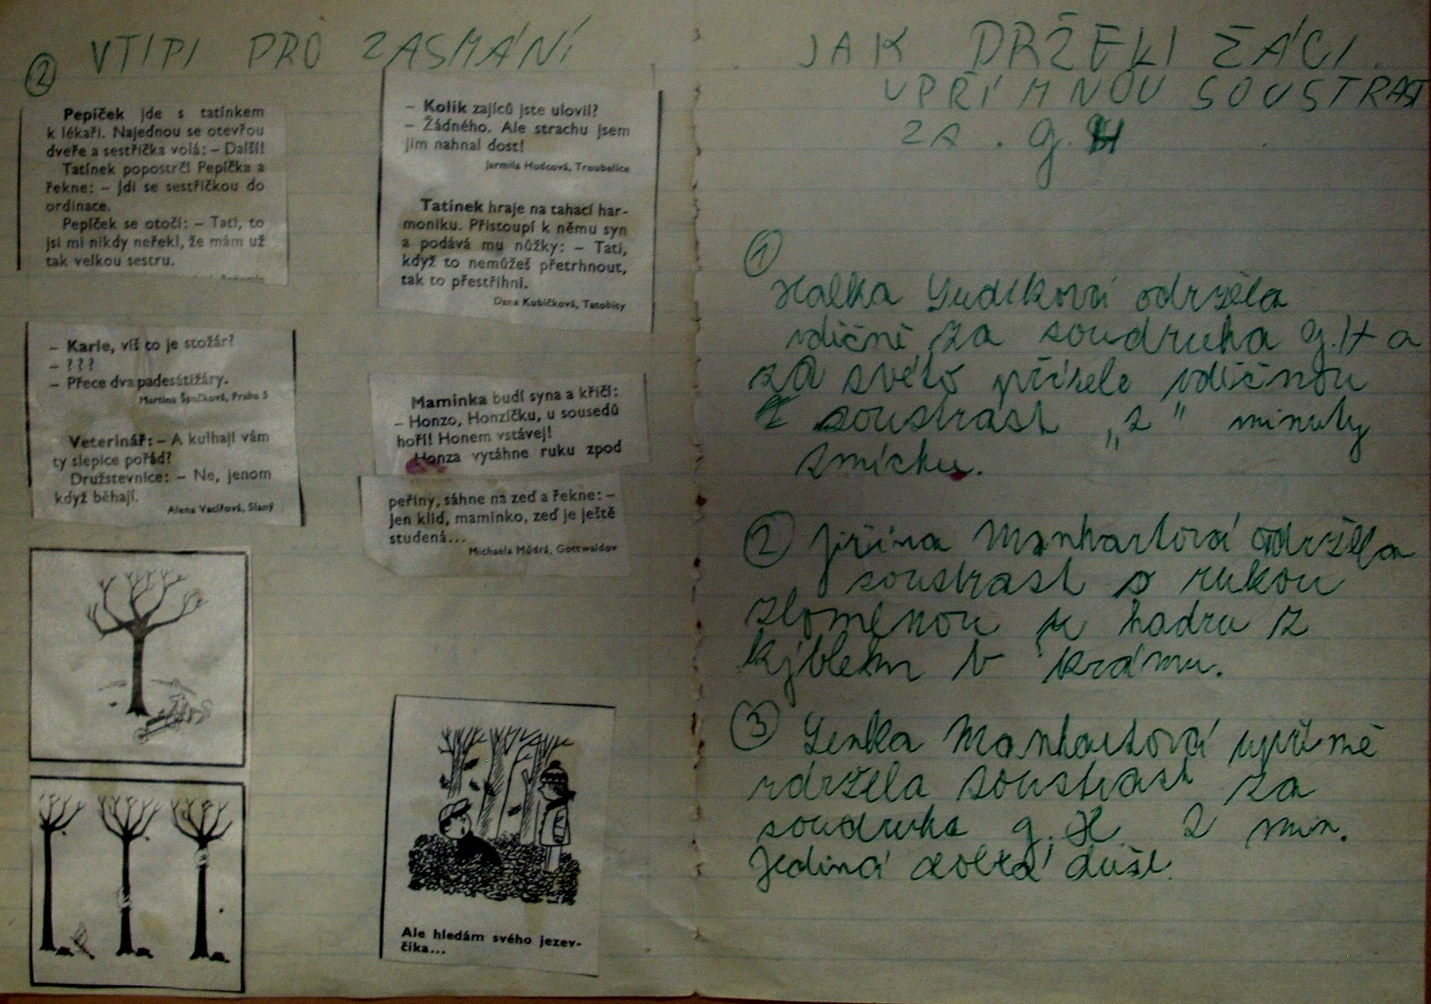 ② VTIPI PRO ZASMÁNÍ
Pepíček jde s tatínkem
k lékaři. Najednou se otevřou
dveře a sestřička volá: – Další!
Tatínek popostrčí Pepíčka a
řekne: – Jdi se sestřičkou do
ordinace.
Pepíček se otočí: – Tati, to
jsi mi nikdy neřekl, že mám už
tak velkou sestru.
– Karle, víš co je stožár?
– ???
– Přece dva padesátižáry.
Martina Špačková, Praha 5
Veterinář: – A kulhají vám
ty slepice pořád?
Družstevnice: – Ne, jenom
když běhají.
Alena Vacířová, Slaný
– Kolik zajíců jste ulovil?
– Žádného. Ale strachu jsem
jim nahnal dost!
Jarmila Hudcová, Troubelice
Tatínek hraje na tahací har-
moniku. Přistoupí k němu syn
a podává mu nůžky: – Tati,
když to nemůžeš přetrhnout,
tak to přestřihni.
Dana Kubíčková, Tatobity
Maminka budí syna a křičí:
– Honzo, Honzíčku, u sousedů
hoří! Honem vstávej!
Honza vytáhne ruku zpod
peřiny, sáhne na zeď a řekne: –
Jen klid, maminko, zeď je ještě
studená...
Michaela Módrá, Gottwaldov
Ale hledám svého jezev-
číka...
JAK DRŽELI ŽÁCI
UPŘÍMNOU SOUSTRAST
ZA. G.H
①
Halka Ludíková održela
vdičně za soudruha g.H a
za svého přítele vdičnou
soustrast „2" minuty
smíchu.
② Jiřina Manhartová održela
soustrast s rukou
zloměnou u hadru z
kýblem v krámu.
③ Lenka Manhartová upřímě
održela soustrast za
soudruha g.H 2 min.
Jediná duše.